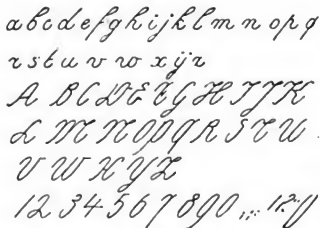 a b c d e f g h i j k l m n o p q
r s t u v w x ÿ z
A B C D E F G H I J K
L M N O P Q R S T U
V W X Y Z
1 2 3 4 5 6 7 8 9 0